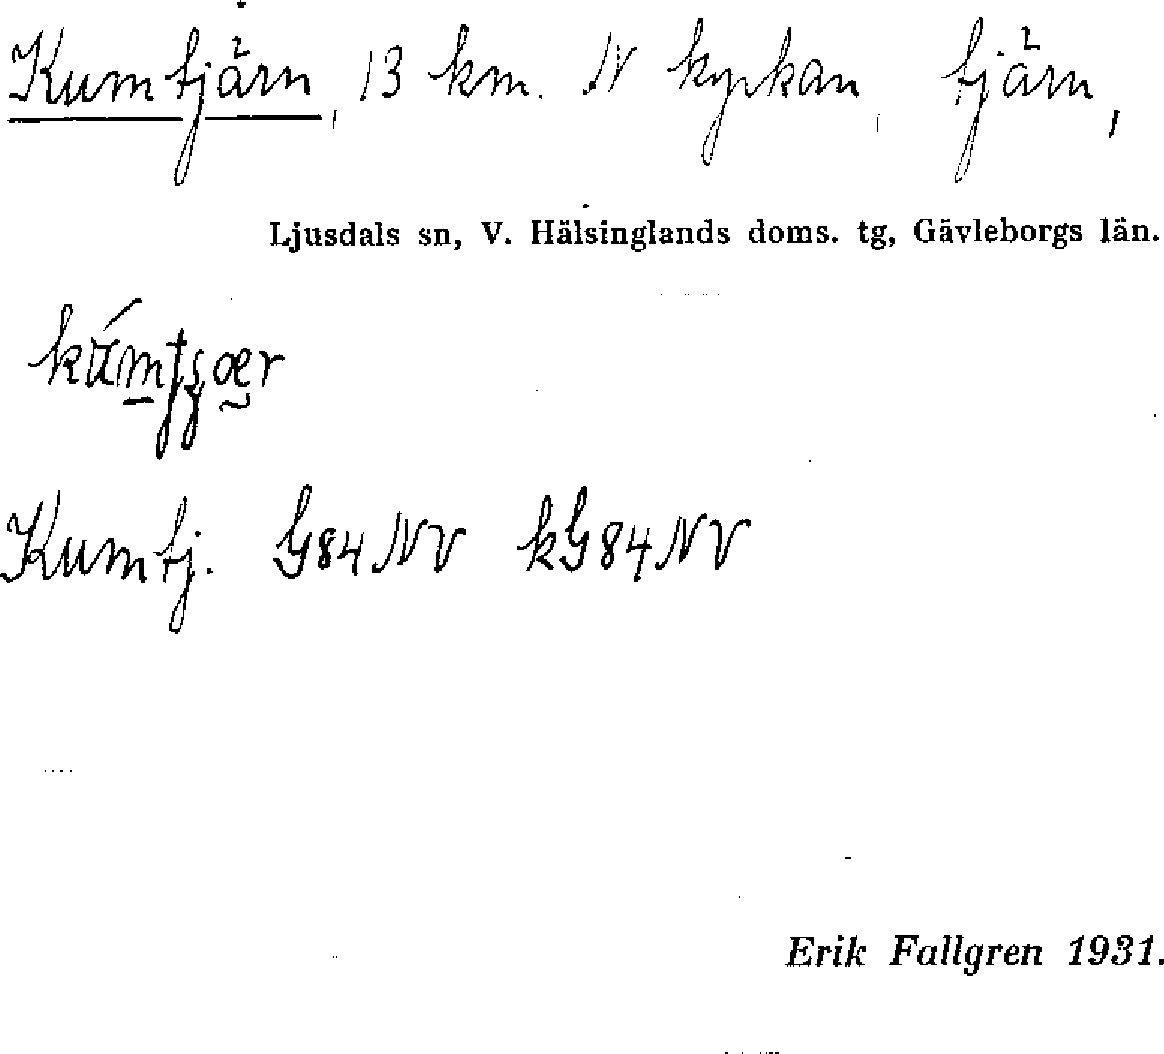 Kumtjärn, 13 km. N kyrkan, tjärn,
Ljusdals sn, V. Hälsinglands doms. tg, Gävleborgs län.
Kumtj. G84NV kG84NV
Erik Fallgren 1931.